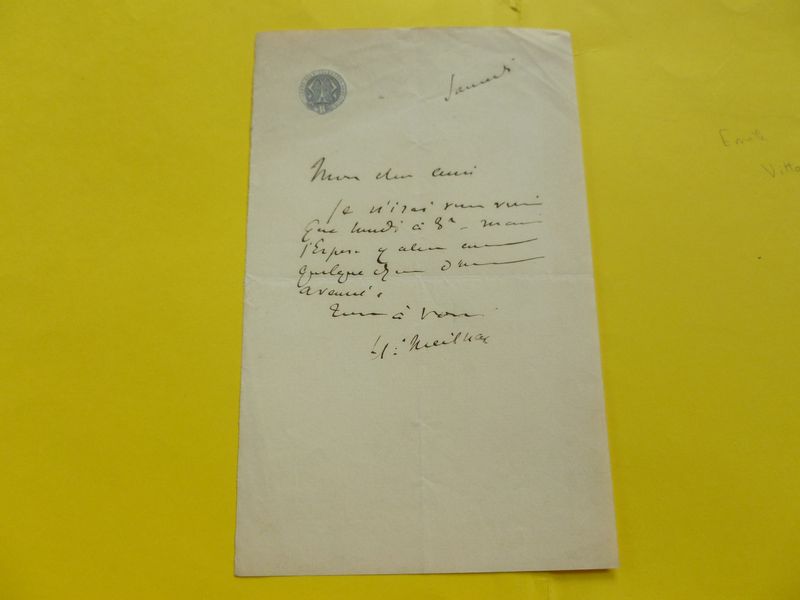 Samedi
Mon cher ami
Je n'irai vous voir
que lundi à 8h - mais
j'espère y aller avec
quelque chose d'
avancé.
Tout à vous
H. Meilhac
Emile